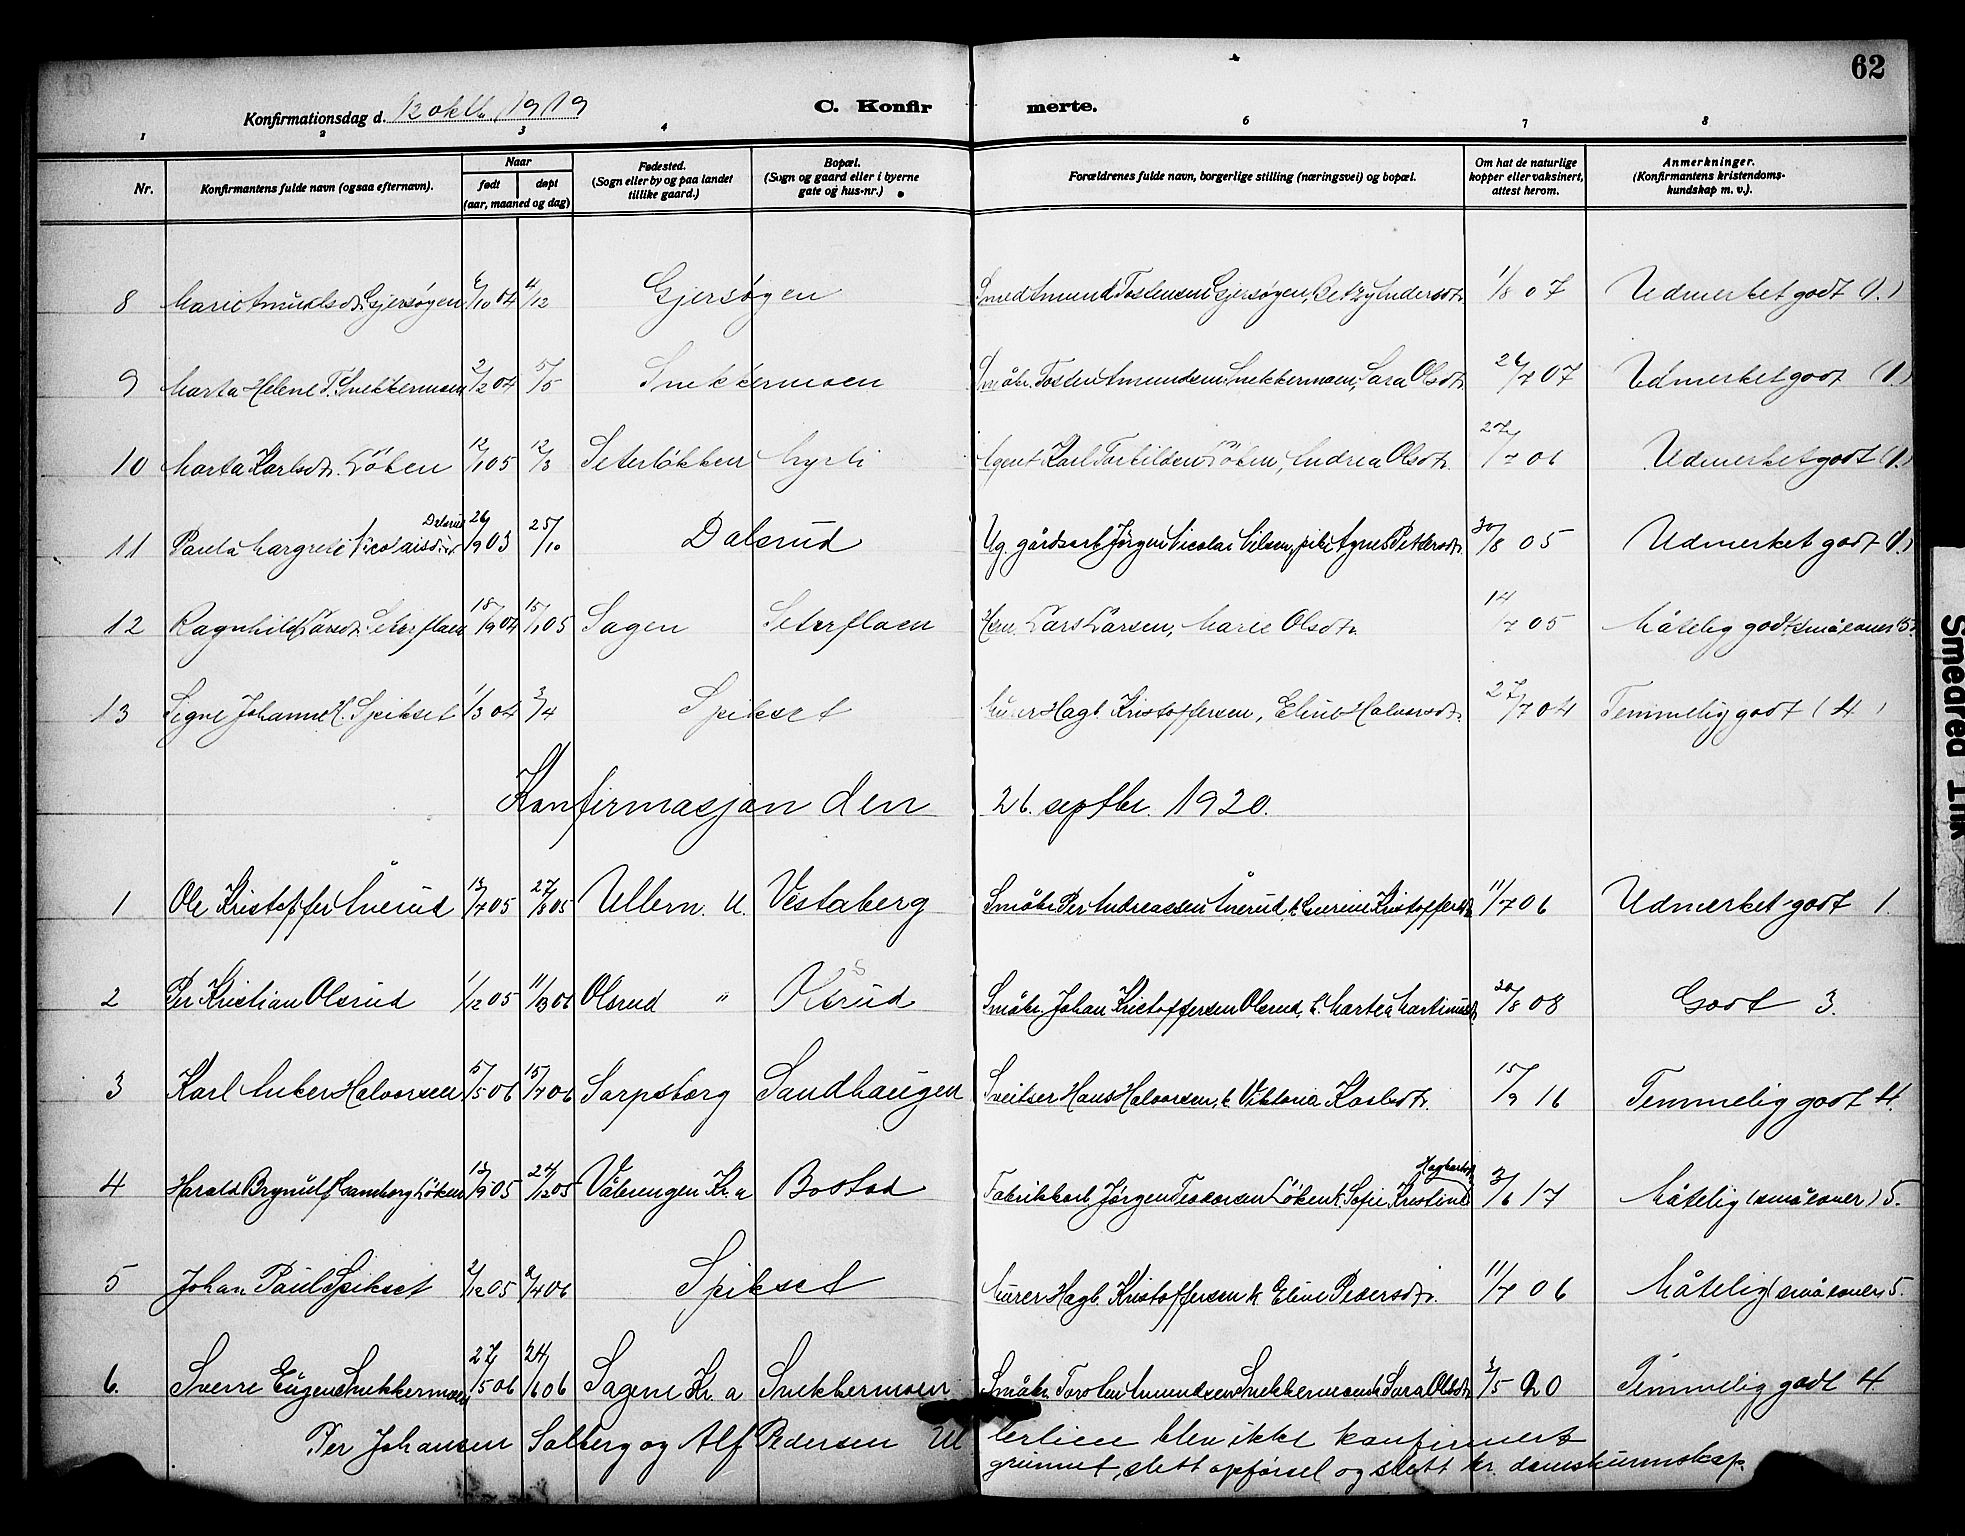 62
Konfirmationsdag d. 12 oktb. 1919 C. Konfir merte.
1 2 3 4 6 7 8
Nr. Konfirmantens fulde navn (ogsaa efternavn). Naar født døpt (aar, maaned og dag) Fødested. (Sogn eller by og paa landet tillike gaard.) Bopæl. (Sogn og gaard eller i byerne gate og hus-nr.) Forældrenes fulde navn, borgerlige stilling (næringsvei) og bopæl. Om hat de naturlige kopper eller vaksinert, attest herom. Anmerkninger. (Konfirmantens kristendoms-kundskap m. v.).
8 Marie Amundsdtr. Gjersøyen 6/10 04 4/12 Gjersøyen Smed Amund Tostensen Gjersøyen, Betzy Andersdtr. 1/8 07 Udmerket godt (1.)
9 Marta Helene T. Snekkermoen 2/2 04 5/5 Snekkermoen Småbr. Tosten Amundsen Snekkermoen, Sara Olsdtr. 26/7 07 Udmerket godt (1.)
10 Marta Karlsdtr. Løken 12/1 05 12/3 Seterløkken Myrli Agent Karl Torkildsen Løken, Andrea Olsdtr. 27/7 06 Udmerket godt (1.)
11 Paula Margrete Nicolaisdtr. Dalsrud 26/9 03 25/10 Dalsrud Ug. gårdsarb. Jørgen Nicolai Nilsen, pike Agnes Pettersdtr. 30/8 05 Udmerket godt (1.)
12 Ragnhild Larsdtr. Seterflaen 18/9 04 15/1 05 Sagen Seterflaen Hm. Lars Larsen, Marie Olsdtr. 14/7 05 Måtelig godt (små evner) 5.
13 Signe Johanne H. Spikset 1/3 04 3/4 Spikset Murer Hagb. Kristoffersen, Eline Halvorsdtr. 27/7 04 Temmelig godt (4)
Konfirmasjon den 26. septbr. 1920.
1 Ole Kristoffer Ånerud 13/7 05 27/8 05 Ullern. U. Vestaberg Småbr. Per Andreassen Ånerud, k. Gurine Kristoffersdtr. 11/7 06 Udmerket godt 1.
2 Per Kristian Olsrud 1/12 05 11/3 06 Olsrud " Olsrud Småbr. Johan Kristoffersen Olsrud, k. Martea Martinusdtr. 20/8 08 Godt 3.
3 Karl Anker Halvorsen 5/5 06 15/7 06 Sarpsborg Sandhaugen Sveitser Hans Halvorsen, k Viktoria Karlsdtr. 15/9 16 Temmelig godt 4.
4 Harald Brynulf Løken 13/9 05 24/12 05 Vålerengen Kr.a Bostad Fabrikkarb. Jørgen Teodorsen Løken k. Sofie Kristine Hagbartsdtr. 3/6 17 Måtelig (små evner) 5.
5 Johan Paul Spikset 2/12 05 8/4 06 Spikset Murer Hagb. Kristoffersen k Eline Pedersdtr. 11/7 06 Måtelig (små evner) 5.
6. Sverre Eugen Snekkermoen 27/5 06 24/6 06 Sagene Kr. a Snekkermoen Småbr. Torsten Amundsen Snekkermoen k Sara Olsdtr. 3/5 20 Temmelig godt 4
Per Johansen Solberg og Alf Pedersen Ul lerlien blev ikke konfirmert
grunnet slett opførsel og slett kr. domskunnskap.
Smeared Ink